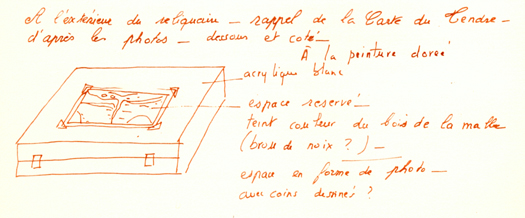 A l'extérieur du reliquaire _ rappel de la Carte du Tendre _
d'après les photos _ dessous et coté _
À la peinture dorée
acrylique blanc
espace reservé _
teint couleur du bois de la malle
(brou de noix ?) _
espace en forme de photo _
avec coins dessinés ?